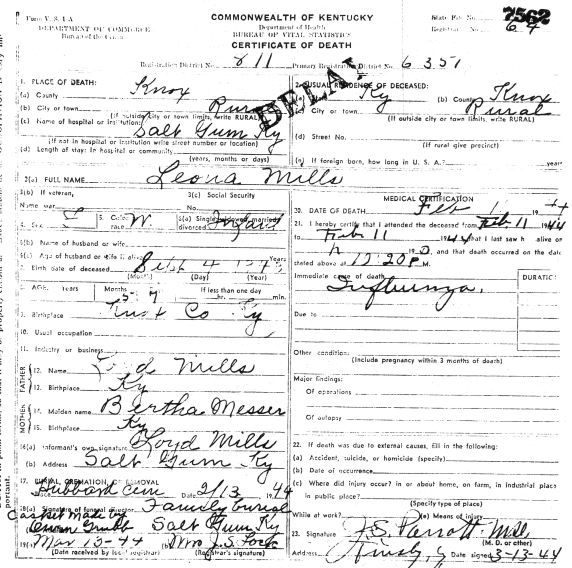 Form V. S. 1-A
DEPARTMENT OF COMMERCE
Bureau of the Census
COMMONWEALTH OF KENTUCKY
Department of Health
BUREAU OF VITAL STATISTICS
CERTIFICATE OF DEATH
State File No. 7562
Registrar's No. 64
Registration District No. 811 Primary Registration District No. 6351
DELAY
1. PLACE OF DEATH:
(a) County Knox
(b) City or town Rural
(If outside city or town limits, write RURAL)
(c) Name of hospital or institution: Salt Gum Ky
(If not in hospital or institution write street number or location)
(d) Length of stay: In hospital or community
(years, months or days)
2. USUAL RESIDENCE OF DECEASED:
(a) State Ky (b) County Knox
(c) City or town Rural
(If outside city or town limits, write RURAL)
(d) Street No.
(If rural give precinct)
If foreign born, how long in U. S. A.? years
3(a) FULL NAME Leona Mills
3(b) If veteran, 3(c) Social Security
Name war No.
5. Color W 6(a) Single, widowed, married,
race divorced Infant
6(b) Name of husband or wife
6(c) Age of husband or wife if alive Years
7. Birth date of deceased Sept 4
(Month) (Day) (Year)
8. AGE: Years Months 5 7 If less than one day
hr. min.
9. Birthplace Knox Co Ky
10. Usual occupation
11. Industry or business
FATHER
12. Name Mills
13. Birthplace Ky
MOTHER
14. Maiden name Bertha Messer
15. Birthplace Ky
16(a) Informant's own signature Loyd Mills
(b) Address Salt Gum Ky
17. BURIAL, CREMATION OR REMOVAL
Hubbard Cem Date 2/13 1944
18(a) Signature of funeral director Family burial
Casket made by
Salt Gum Ky
19(a) Mar 13-44 (b) Mrs J.S. Lock
(Date received by local registrar) (Registrar's signature)
MEDICAL CERTIFICATION
20. DATE OF DEATH Feb 1 1944
21. I hereby certify that I attended the deceased from Feb 11 1944
to Feb 11 1944 that I last saw h alive on
and that death occurred on the date
stated above at 12:20 P M.
Immediate cause of death DURATION
Influenza.
Due to
Other condition:
(Include pregnancy within 3 months of death)
Major findings:
Of operations
Of autopsy
22. If death was due to external causes, fill in the following:
(a) Accident, suicide, or homicide (specify)
(b) Date of occurrence
(c) Where did injury occur? in or about home, on farm, in industrial place
in public place?
(Specify type of place)
While at work? (e) Means of injury
23. Signature J.S. Parrott
(M. D. or other)
Address Date signed 3-13-44